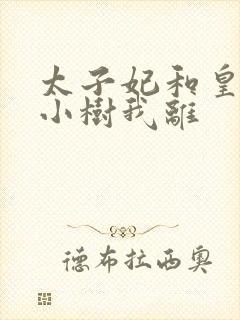 太子妃和皇
小樹我離
德布拉西奧